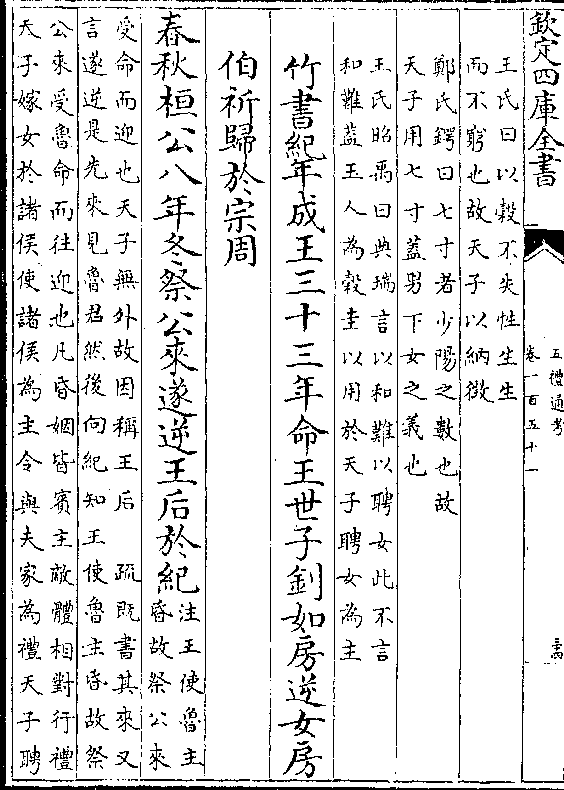 欽定四庫全書
五禮通考
卷一百五十一
王氏曰以穀不失性生生
而不窮也故天子以納徵
鄭氏鍔曰七寸者少陽之數也故
天子用七寸蓋男下女之義也
王氏昭禹曰典瑞言以和難以聘女此不言
和難蓋玉人為穀圭以用於天子聘女為主
竹書紀年成王三十三年命王世子釗如房逆女房
伯祈歸於宗周
春秋桓公八年冬祭公來遂逆王后於紀
注王使魯主
昏故祭公來
受命而迎也天子無外故因稱王后 疏既書其來又
言遂逆是先來見魯君然後向紀知王使魯主昏故祭
公來受魯命而往迎也凡昏姻皆賓主敵體相對行禮
天子嫁女於諸侯使諸侯為主令與夫家為禮天子聘